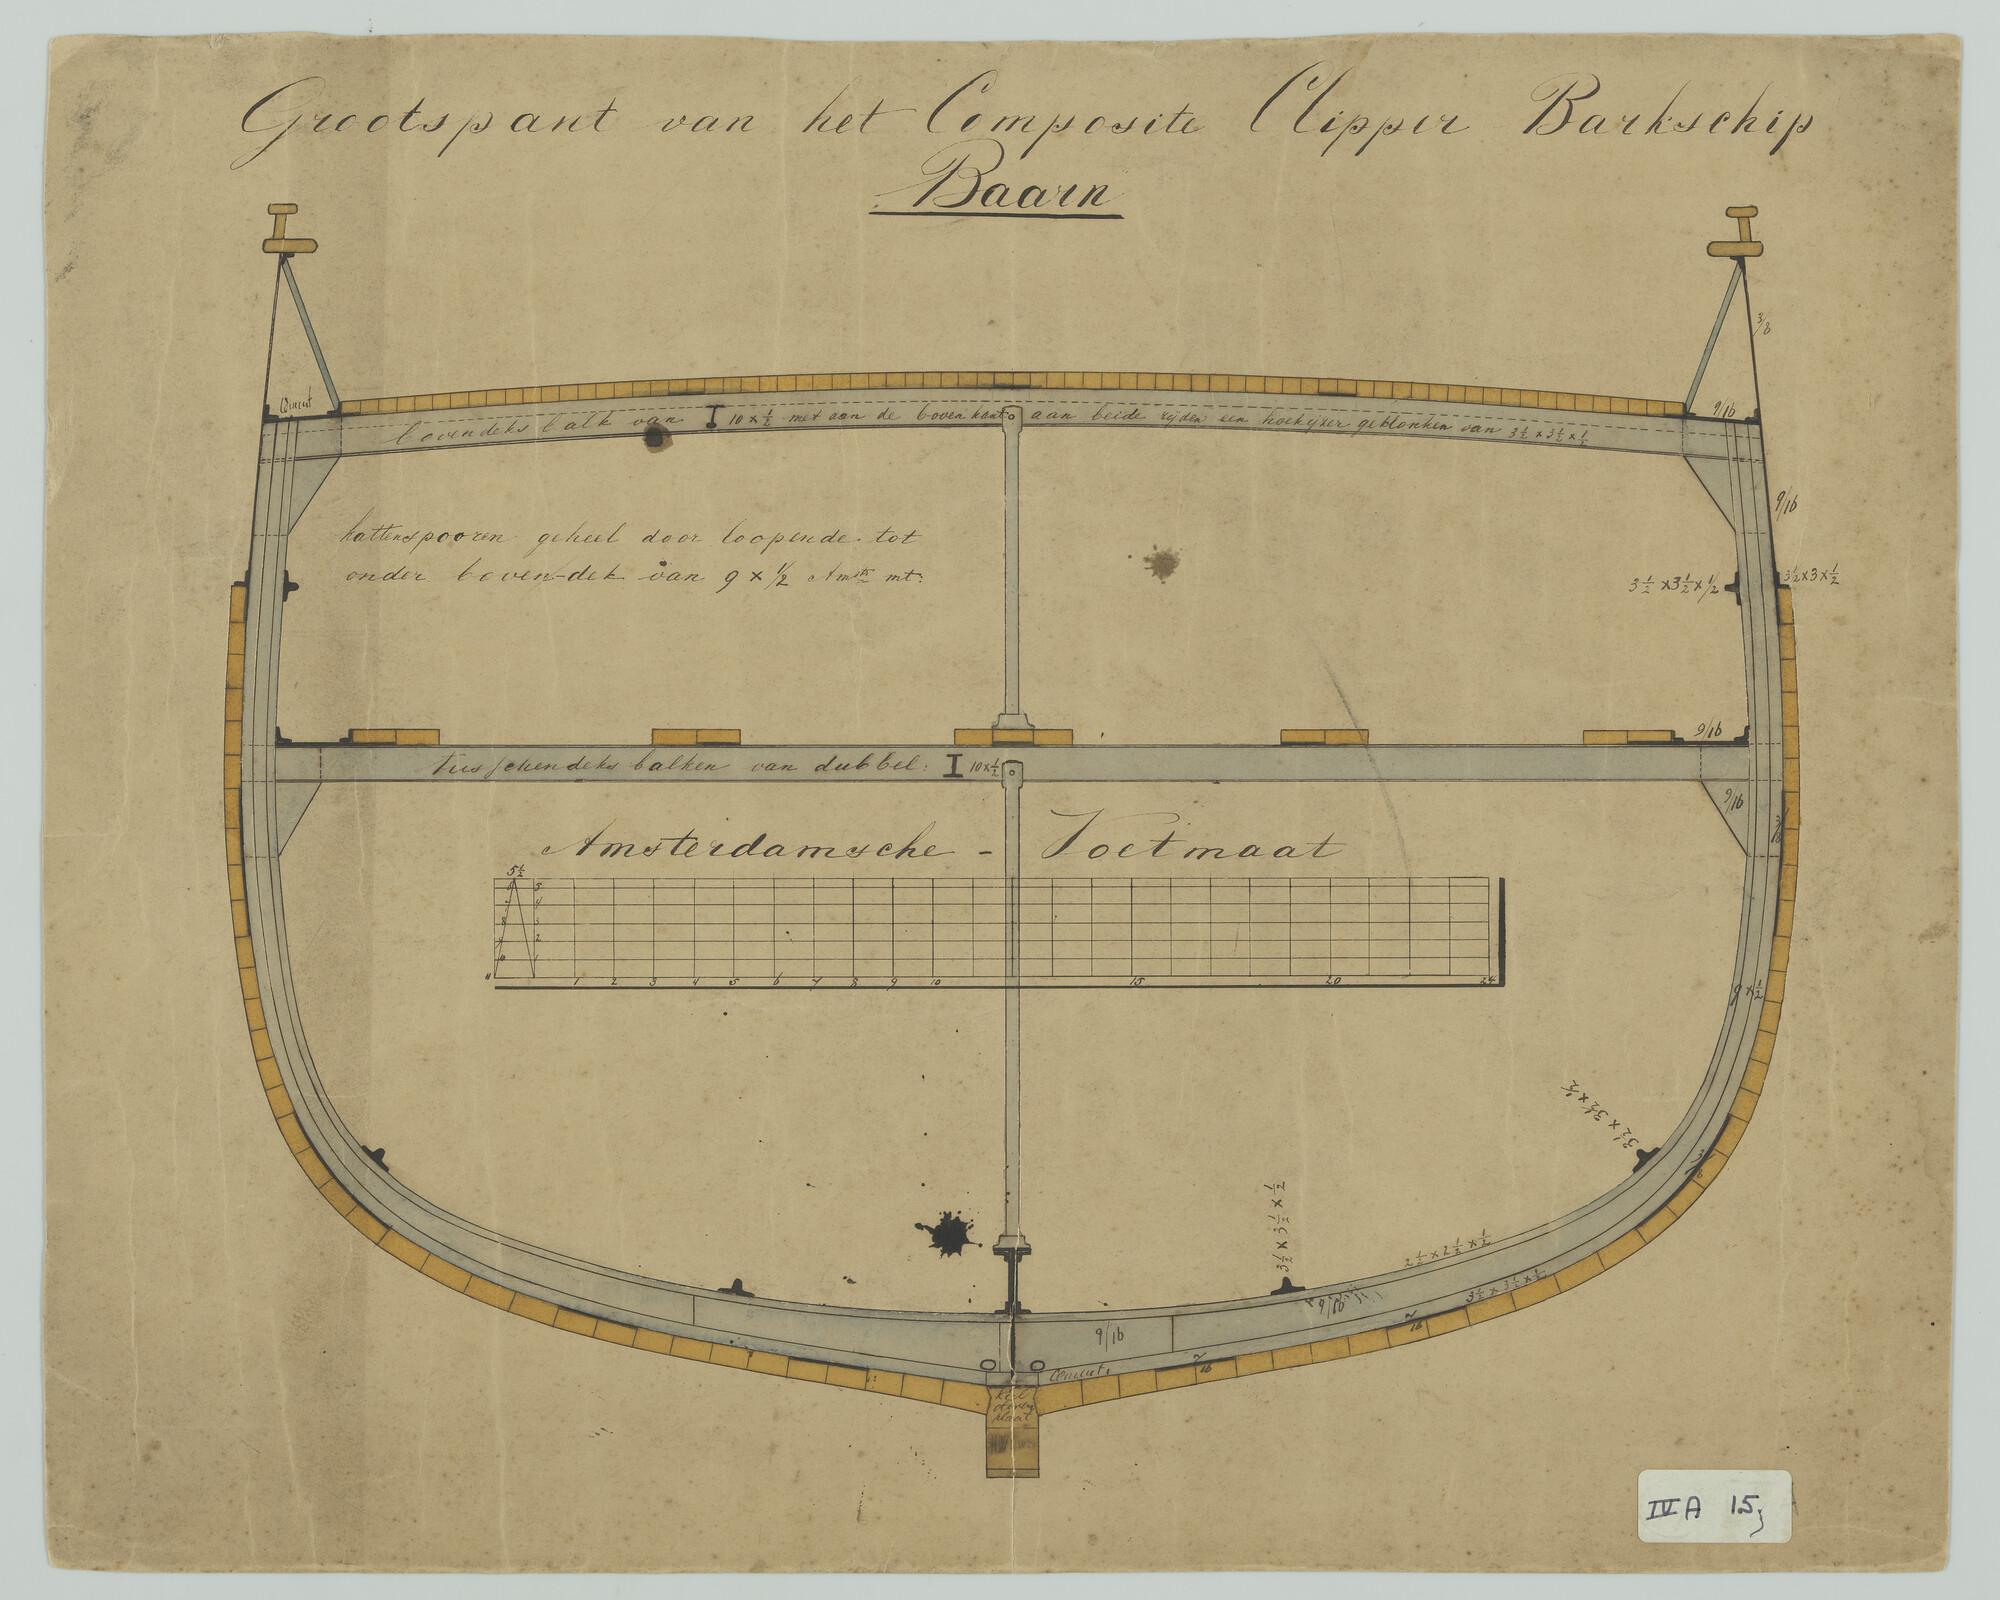 Grootspant van het Composite Clipper Barkschip
Baarn
3/8
Cement
9/16
bovendeks balk van I 10 x ½ met aan de bovenkant aan beide zijden een hoekijzer geklonken van 3½ x 3½ x ½
9/16
kattenspooren geheel door loopende tot
onder boven-dek van 9 x ½ Amsts mt:
3½ x 3½ x ½
3½ x 3 x ½
9/16
tusschendeks balken van dubbel: I 10 x ½
9/16
Amsterdamsche - Voetmaat
5½
6 5
7 4
8 3
9 2
10 1
11 1 2 3 4 5 6 7 8 9 10 15 20 24
9 x ½
3½ x 3½ x ½
3½ x 3½ x ½
2½ x 2½ x ½
3½ x 3½ x ½
9/16
9/16
7/16
7/16
Cement
Kiel
plaat
IV A 15j